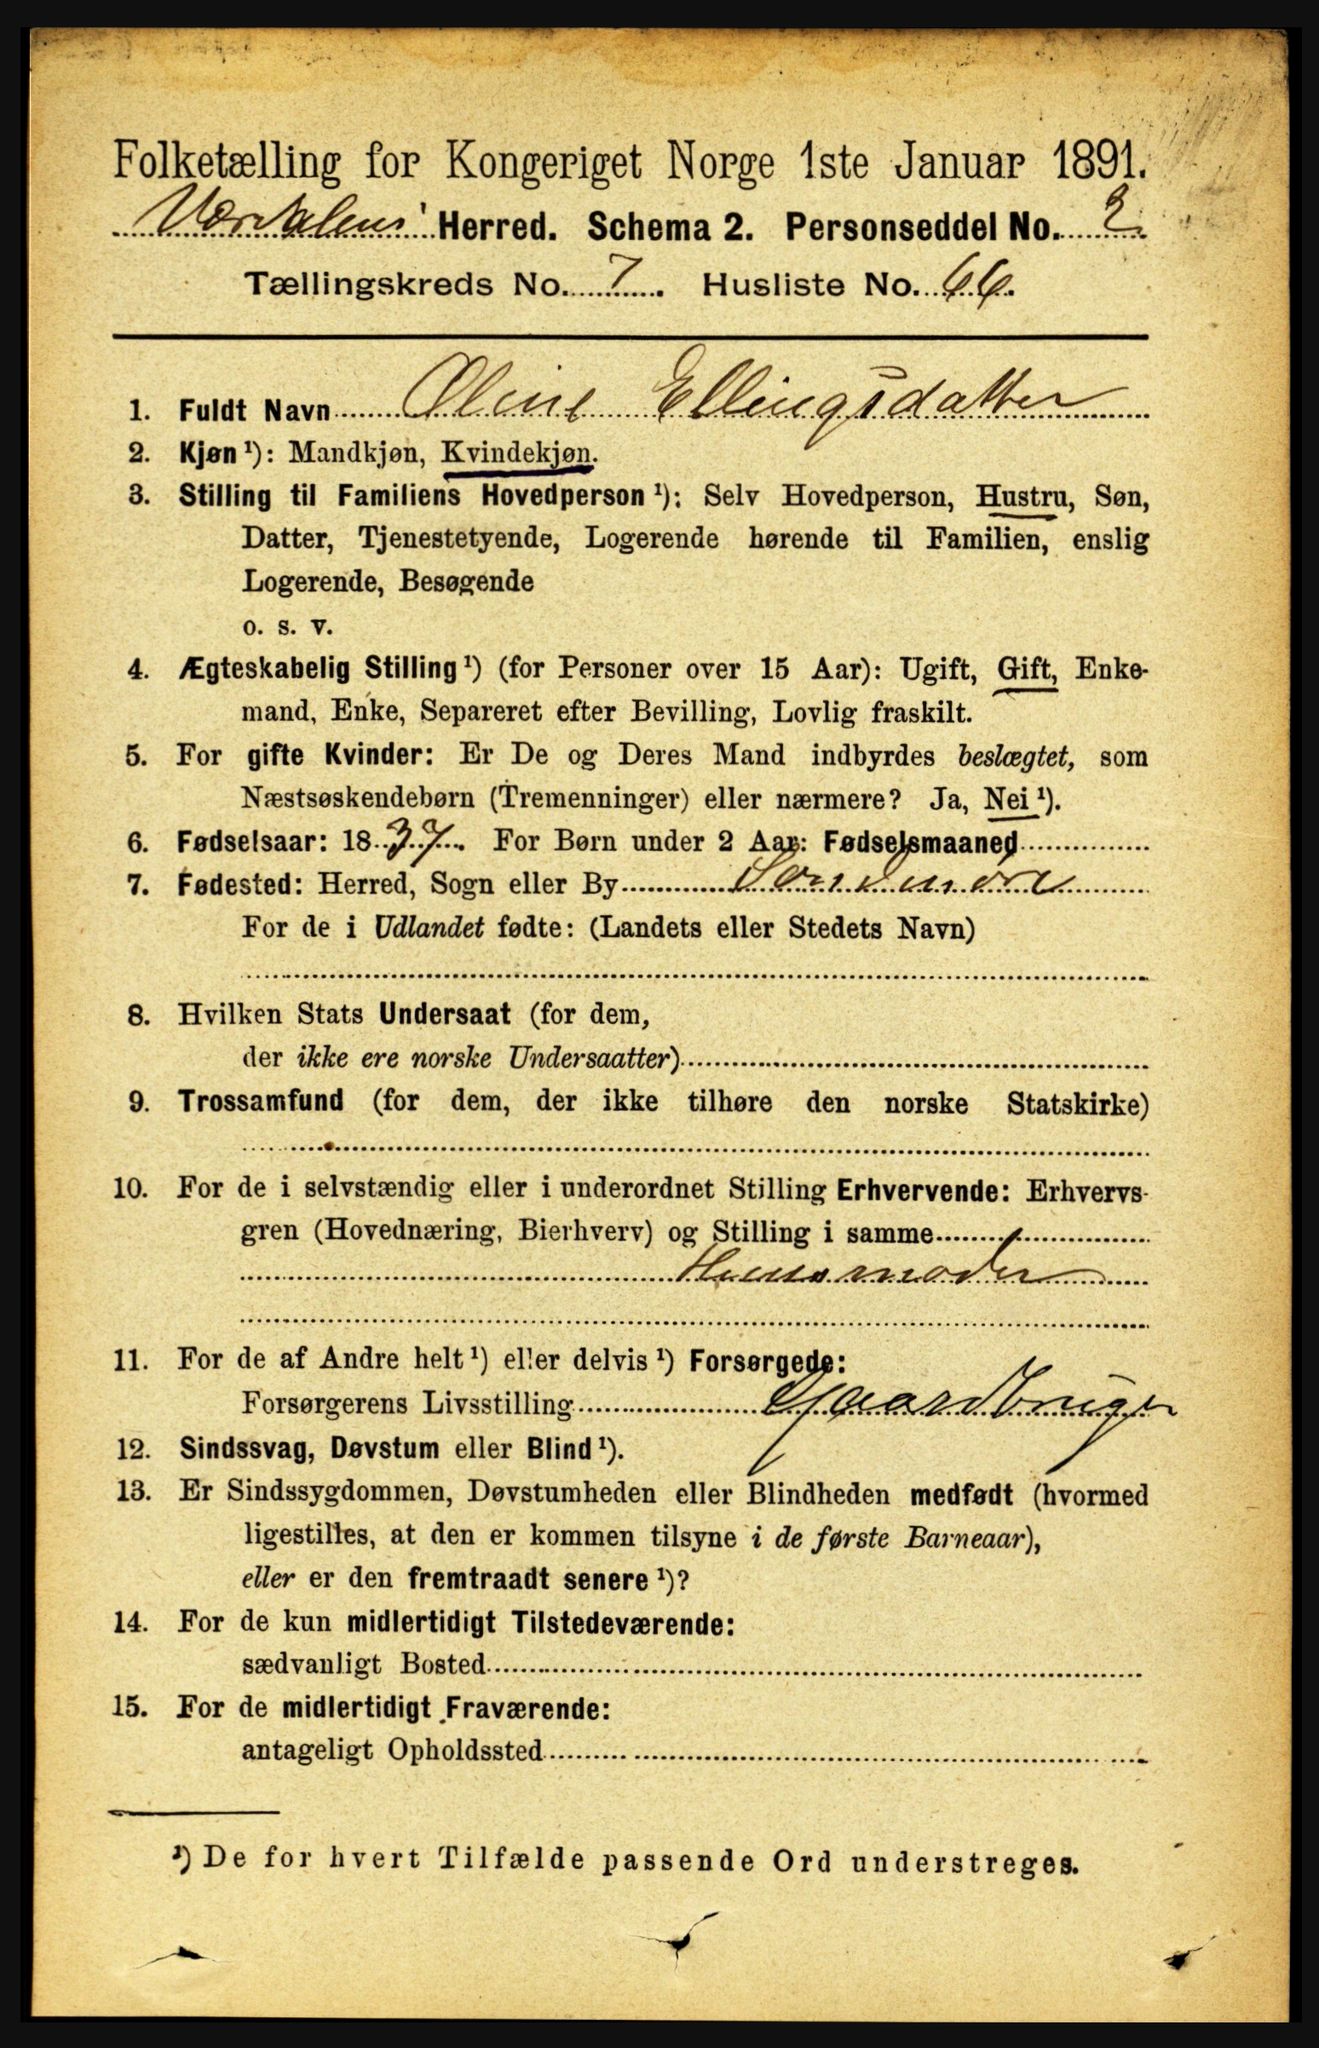 Folketælling for Kongeriget Norge 1ste Januar 1891.
Værdalens Herred. Schema 2. Personseddel No. 2
Tællingskreds No. 7. Husliste No. 66.
1. Fuldt Navn Oline Ellingsdatter
2. Kjøn ¹): Mandkjøn, Kvindekjøn.
3. Stilling til Familiens Hovedperson ¹): Selv Hovedperson, Hustru, Søn,
Datter, Tjenestetyende, Logerende hørende til Familien, enslig
Logerende, Besøgende
o. s. v.
4. Ægteskabelig Stilling ¹) (for Personer over 15 Aar): Ugift, Gift, Enke-
mand, Enke, Separeret efter Bevilling, Lovlig fraskilt.
5. For gifte Kvinder: Er De og Deres Mand indbyrdes beslægtet, som
Næstsøskendebørn (Tremenninger) eller nærmere? Ja, Nei ¹).
6. Fødselsaar: 1837. For Børn under 2 Aar: Fødselsmaaned
7. Fødested: Herred, Sogn eller By Søndmøre
For de i Udlandet fødte: (Landets eller Stedets Navn)
8. Hvilken Stats Undersaat (for dem,
der ikke ere norske Undersaatter)
9. Trossamfund (for dem, der ikke tilhøre den norske Statskirke)
10. For de i selvstændig eller i underordnet Stilling Erhvervende: Erhvervs-
gren (Hovednæring, Bierhverv) og Stilling i samme
Huusmoder
11. For de af Andre helt ¹) eller delvis ¹) Forsørgede:
Forsørgerens Livsstilling Gaardbruger
12. Sindssvag, Døvstum eller Blind ¹).
13. Er Sindssygdommen, Døvstumheden eller Blindheden medfødt (hvormed
ligestilles, at den er kommen tilsyne i de første Barneaar),
eller er den fremtraadt senere ¹)?
14. For de kun midlertidigt Tilstedeværende:
sædvanligt Bosted
15. For de midlertidigt Fraværende:
antageligt Opholdssted
¹) De for hvert Tilfælde passende Ord understreges.